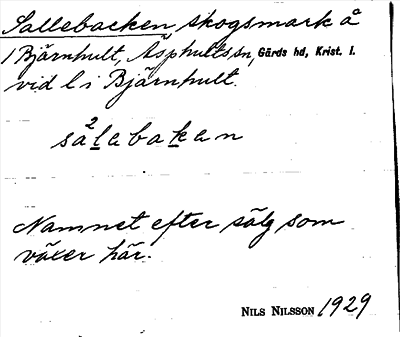 Sallebacken, skogsmark å
1 Bjärnhult, Äsphults sn, Gärds hd, Krist. l.
vid l i Bjärnhult.
sa²lebaken
Namnet efter sälg som
växer här.
NILS NILSSON 1929